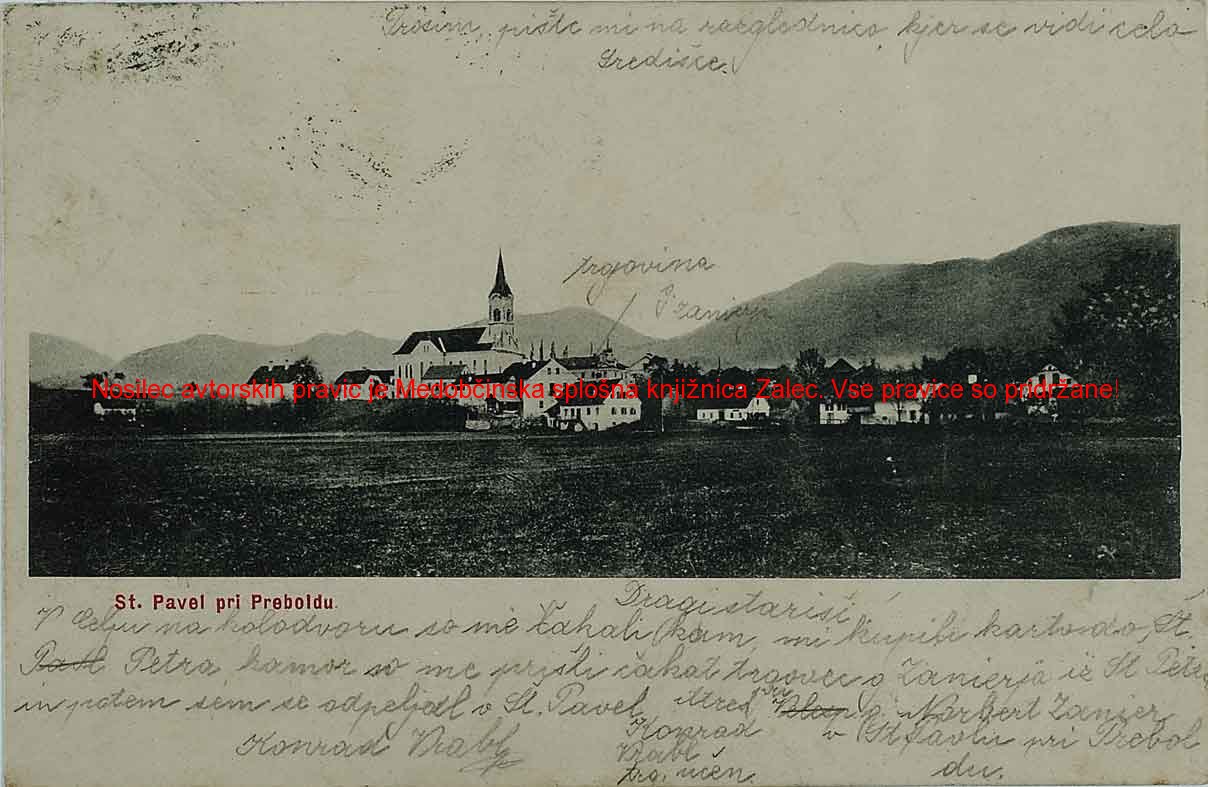 Prosim, pište mi na razglednico, kjer se vidi cela
Središče.
trgovina
Zanier
Nosilec avtorskih pravic je Medobčinska splošna knjižnica Žalec. Vse pravice so pridržane!
St. Pavel pri Preboldu.
Dragi stariši
V Celju na kolodvoru so me čakali kam, mi kupili karto do Št.
Petra, kamor so me prišli čakat trgovec g Zanierja iz St Petra
in potem sem se odpeljal v St. Pavel,
pri g. Norbert Zanier
Konrad Vrabl
Konrad
Vrabl
trg. učen.
v St Pavlu pri Prebol
du.